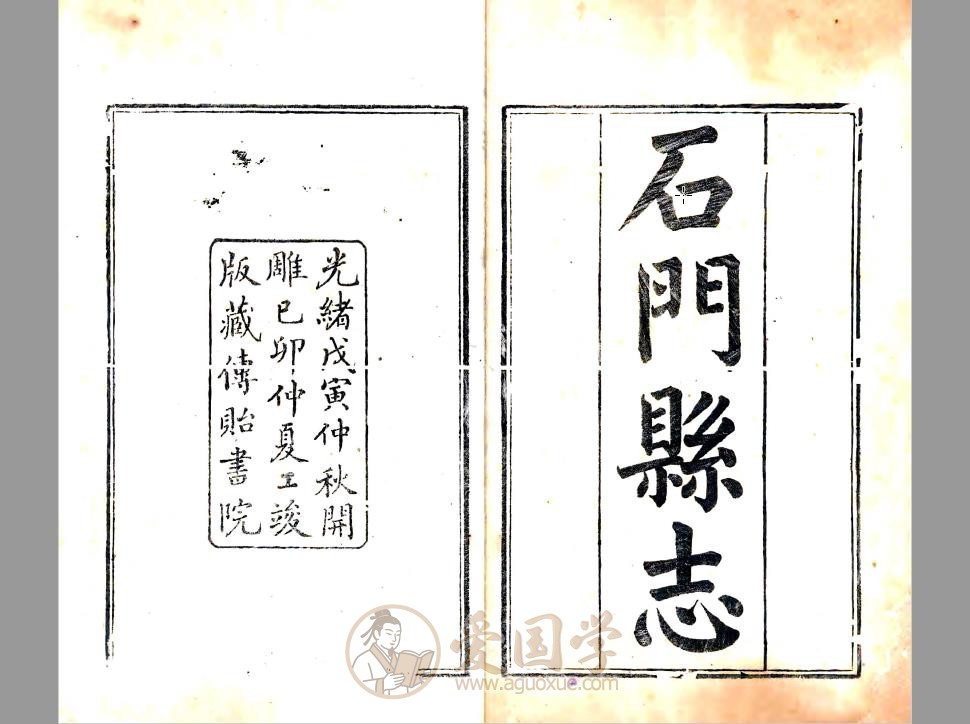 石門縣志
光緒戊寅仲秋開
雕已卯仲夏工竣
版藏傳貽書院
爱国学
www.aguoxue.com